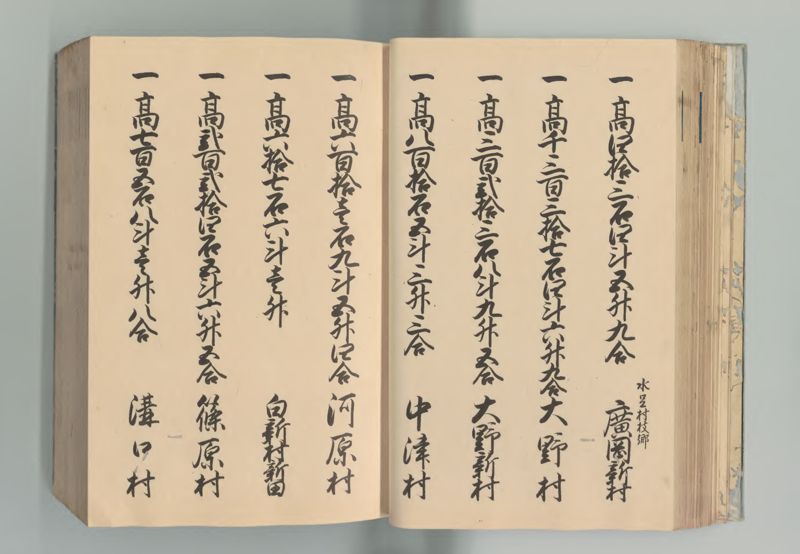 一 高四拾三石四斗五升九合 水足村枝郷 廣岡新村
一 高千三百三拾七石四斗六升九合 大野村
一 高三百弐拾三石八斗九升五合 大野新村
一 高八百拾石五斗三升三合 中津村
一 高六百拾壱石九斗五升四合 河原村
一 高六拾七石六斗壱升 同新村新田
一 高弐百弐拾四石五斗六升五合 篠原村
一 高七百五石八斗壱升八合 溝口村